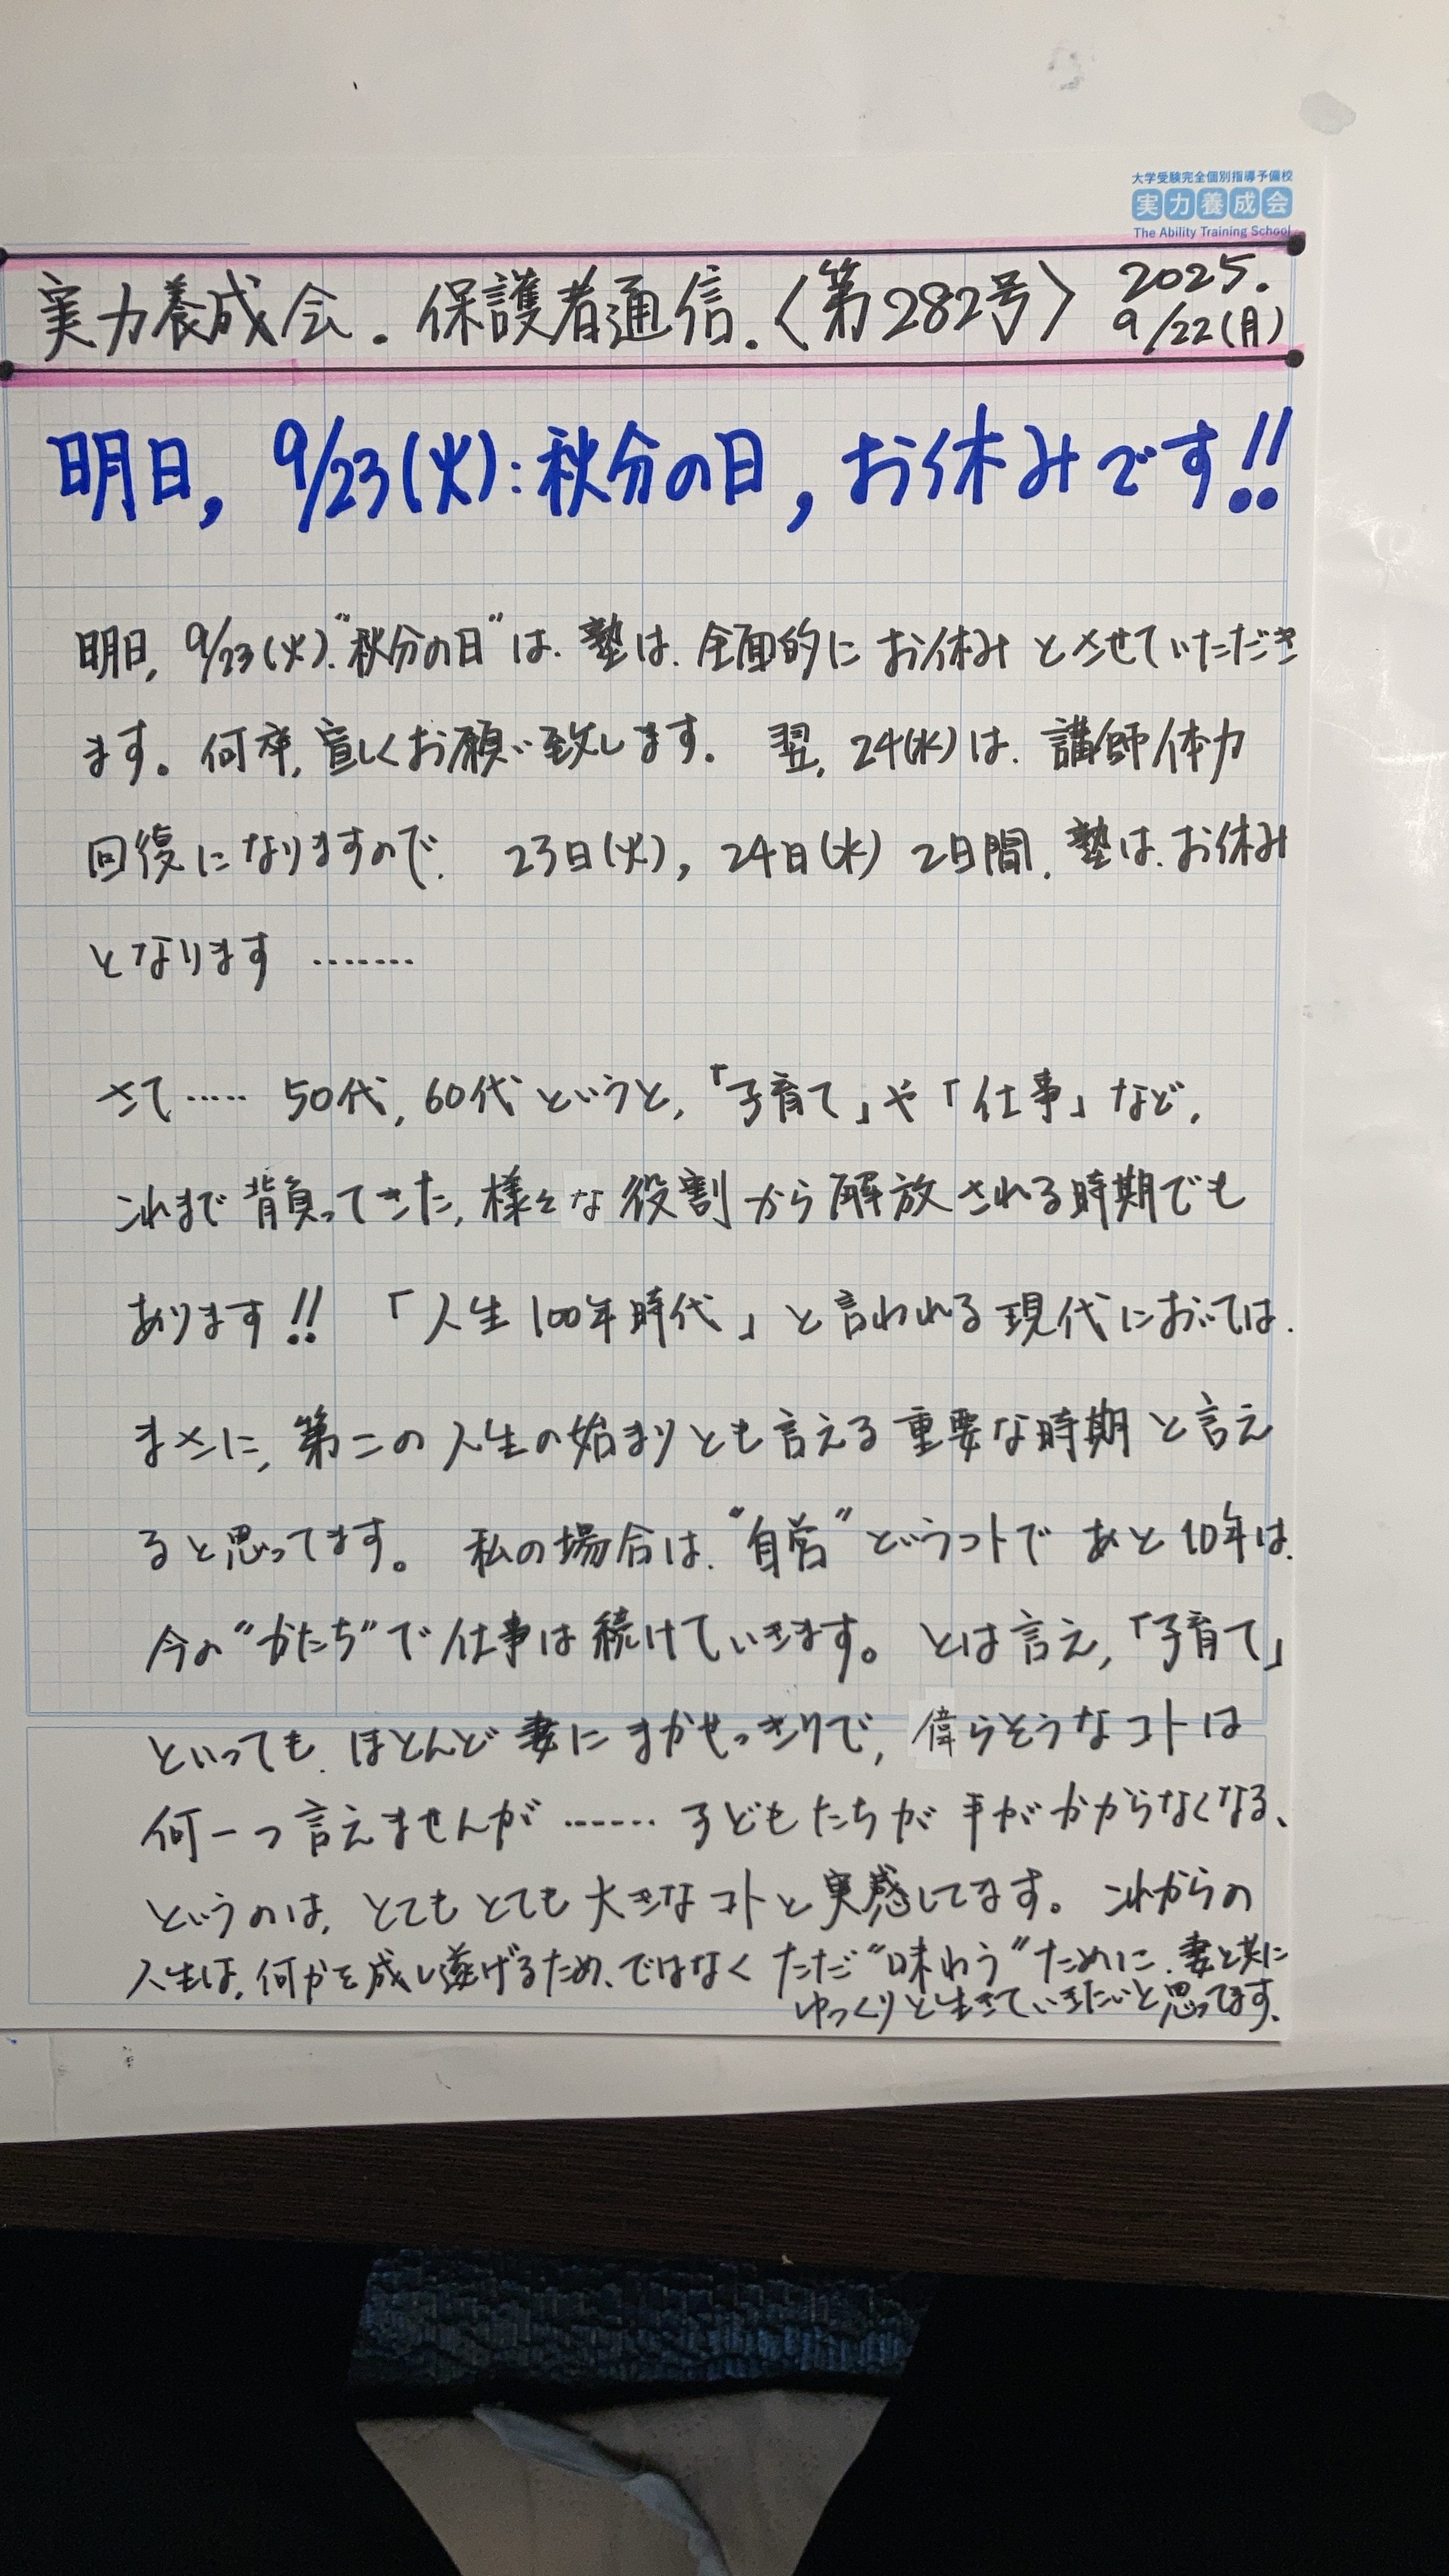 大学受験完全個別指導予備校
実力養成会
The Ability Training School
実力養成会.保護者通信.〈第282号〉 2025.
9/22(月)
明日, 9/23(火):秋分の日, お休みです!!
明日, 9/23(火)."秋分の日"は.塾は.全面的にお休みとさせていただき
ます。何卒,宜しくお願い致します。翌, 24(水)は.講師体力
回復になりますので. 23日(火), 24日(水) 2日間.塾は.お休み
となります ‥‥‥‥
さて‥‥‥ 50代, 60代というと,「子育て」や「仕事」など,
これまで背負ってきた,様々な役割から解放される時期でも
あります!! 「人生100年時代」と言われる現代においては.
まさに,第二の人生の始まりとも言える重要な時期と言え
ると思ってます。 私の場合は."自営"というコトであと10年は.
今の"かたち"で仕事は続けていきます。とは言え,「子育て」
といっても.ほとんど妻にまかせっきりで,偉らそうなコトは
何一つ言えませんが‥‥‥‥子どもたちが手がかからなくなる、
というのは,とてもとても大きなコトと実感してます。これからの
人生は,何かを成し遂げるため、ではなくただ"味わう"ために.妻と共に
ゆっくりと生きていきたいと思ってます.